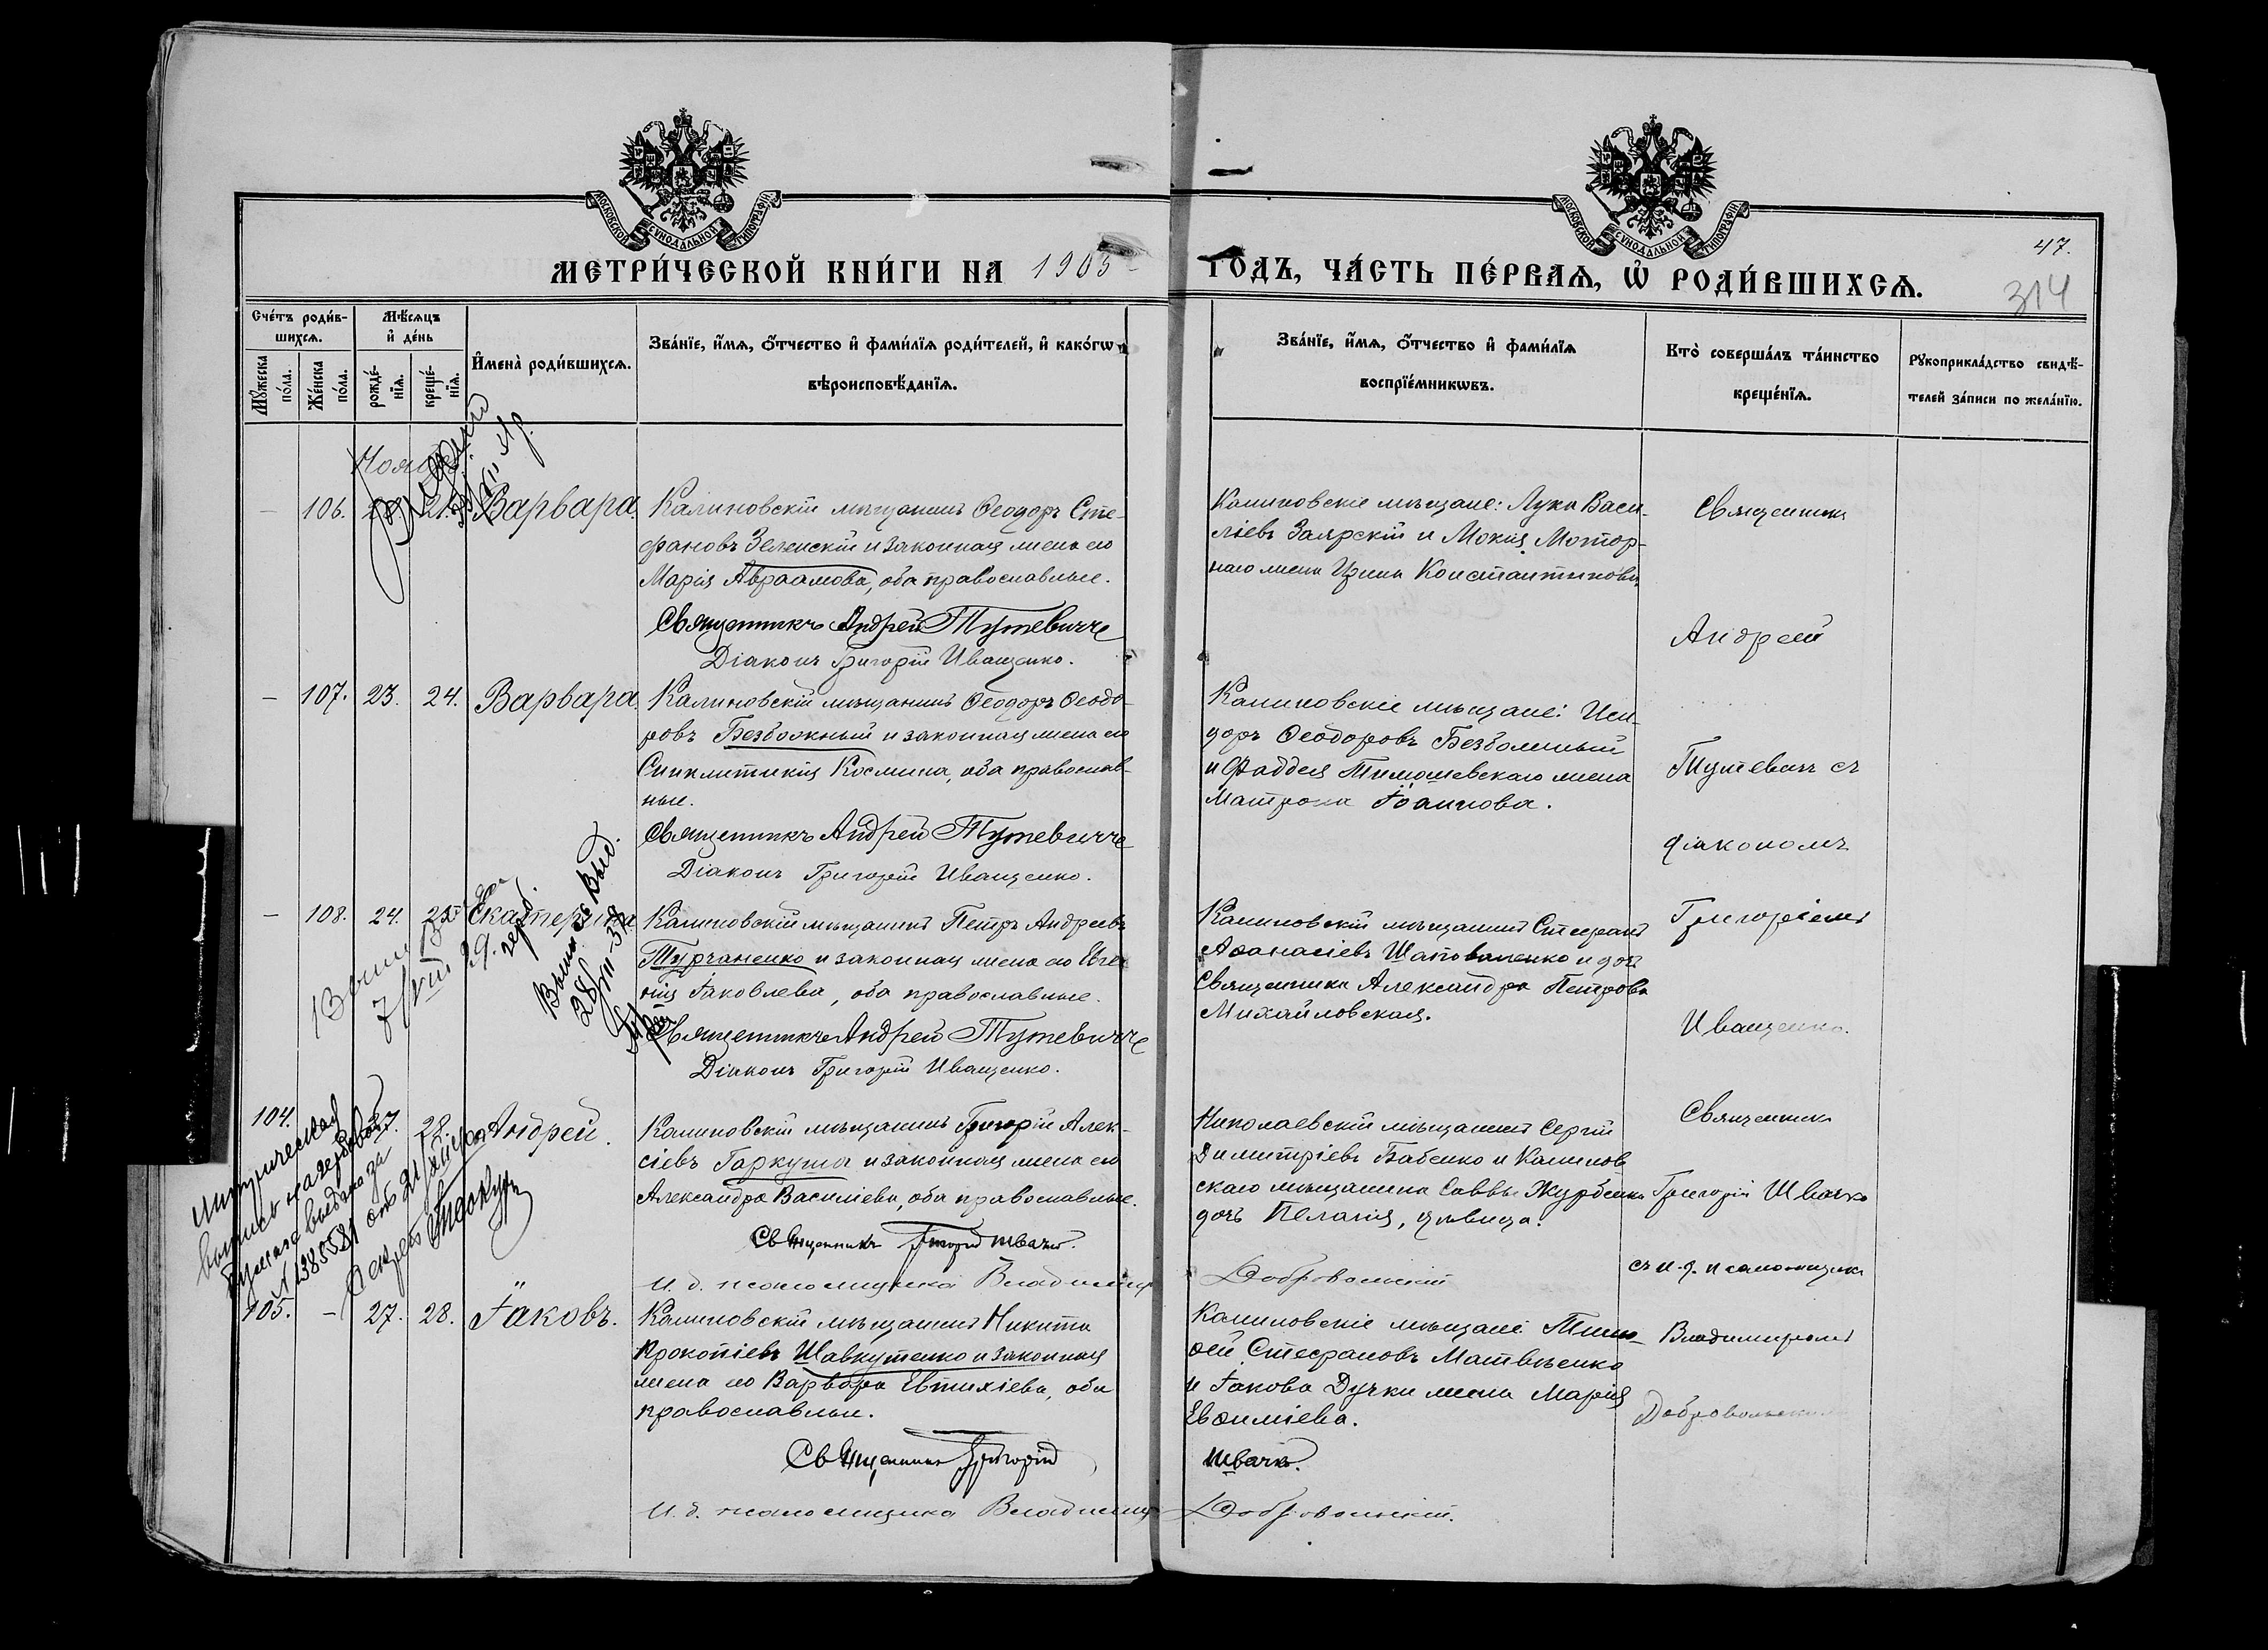 МОСКОВСКОЙ СУНОДАЛЬНОЙ ТИПОГРАФІИ
МОСКОВСКОЙ СУНОДАЛЬНОЙ ТИПОГРАФІИ
МЕТРИ́ЧЕСКОЙ КНИ́ГИ НА 1905
ГОДЪ, ЧА́СТЬ ПЕ́РВАѦ, Ѡ҆ РОДИ́ВШИХСѦ.
47.
314
Сче́тъ роди́в-
шихсѧ.
Мꙋ́жеска по́ла.
Же́нска по́ла.
Мѣ́сѧцъ
и҆ де́нь
рожде́-
нїѧ.
креще́-
нїѧ.
И҆мена̀ роди́вшихсѧ.
Зва́нїе, и҆́мѧ, ѻ҆́тчество и҆ фами́лїѧ роди́телей, и҆ како́гѡ
вѣроисповѣ́данїѧ.
Зва́нїе, и҆́мѧ, ѻ҆́тчество и҆ фами́лїѧ
воспрїе́мникѡвъ.
Кто̀ соверша́лъ та́инство
креще́нїѧ.
Рꙋкоприкла́дство свидѣ́-
телей за́писи по жела́нїю.
106. Варвара.
Калиновскій мѣщанинъ Ѳеодоръ Сте-
фановъ Зеленскій и законная жена его
Марія Авраамова, оба православные.
Священникъ Андрей Тутевичъ
Діаконъ Григорій Иващенко.
Калиновскіе мѣщане: Лука Васи-
ліевъ Заярскій и Мокія Мотор-
наго жена Ирина Константинова.
Священникъ
Андрей
– 107. 23. 24. Варвара.
Калиновскій мѣщанинъ Ѳеодоръ Ѳеодо-
ровъ Безбожный и законная жена его
Синклитикія Космина, оба православ-
ные.
Священникъ Андрей Тутевичъ
Діаконъ Григорій Иващенко.
Калиновскіе мѣщане: Иси-
доръ Ѳеодоровъ Безбожный
и Фаддея Тимошевскаго жена
Матрона Іоаннова.
Тутевичъ съ
діакономъ
– 108. 24. Екатерина
Калиновскій мѣщанинъ Петръ Андреевъ
Турчаненко и законная жена его Евге-
нія Іаковлева, оба православные.
Священникъ Андрей Тутевичъ
Діаконъ Григорій Иващенко.
Калиновскій мѣщанинъ Стефанъ
Аѳанасіевъ Шаповаленко и дочь
Священника Александра Петрова
Михайловская.
Григоріемъ
Иващенко.
104. 27. 28. Андрей.
Калиновскій мѣщанинъ Григорій Алек-
сіевъ Гаркуша и законная жена его
Александра Василіева, оба православные.
Священникъ Григорій Швачко.
И. д. псаломщика Владиміръ Добровольскій
Николаевскій мѣщанинъ Сергій
Димитріевъ Бабенко и Калинов-
скаго мѣщанина Саввы Журбенка
дочь Пелагія, дѣвица.
Священникъ
Григорій Швачко
съ и. д. псаломщика
105. – 27. 28. Іаковъ.
Калиновскій мѣщанинъ Никита
Прокопіевъ Шавкутенко и законная
жена его Варвара Евтихіева, оба
православные.
Священникъ Григорій Швачко.
И. д. псаломщика Владиміръ Добровольскій.
Калиновскіе мѣщане Тимо-
ѳей Стефановъ Матвѣенко
и Іакова Дучки жена Марія
Евѳиміева.
Владиміромъ
Добровольскимъ